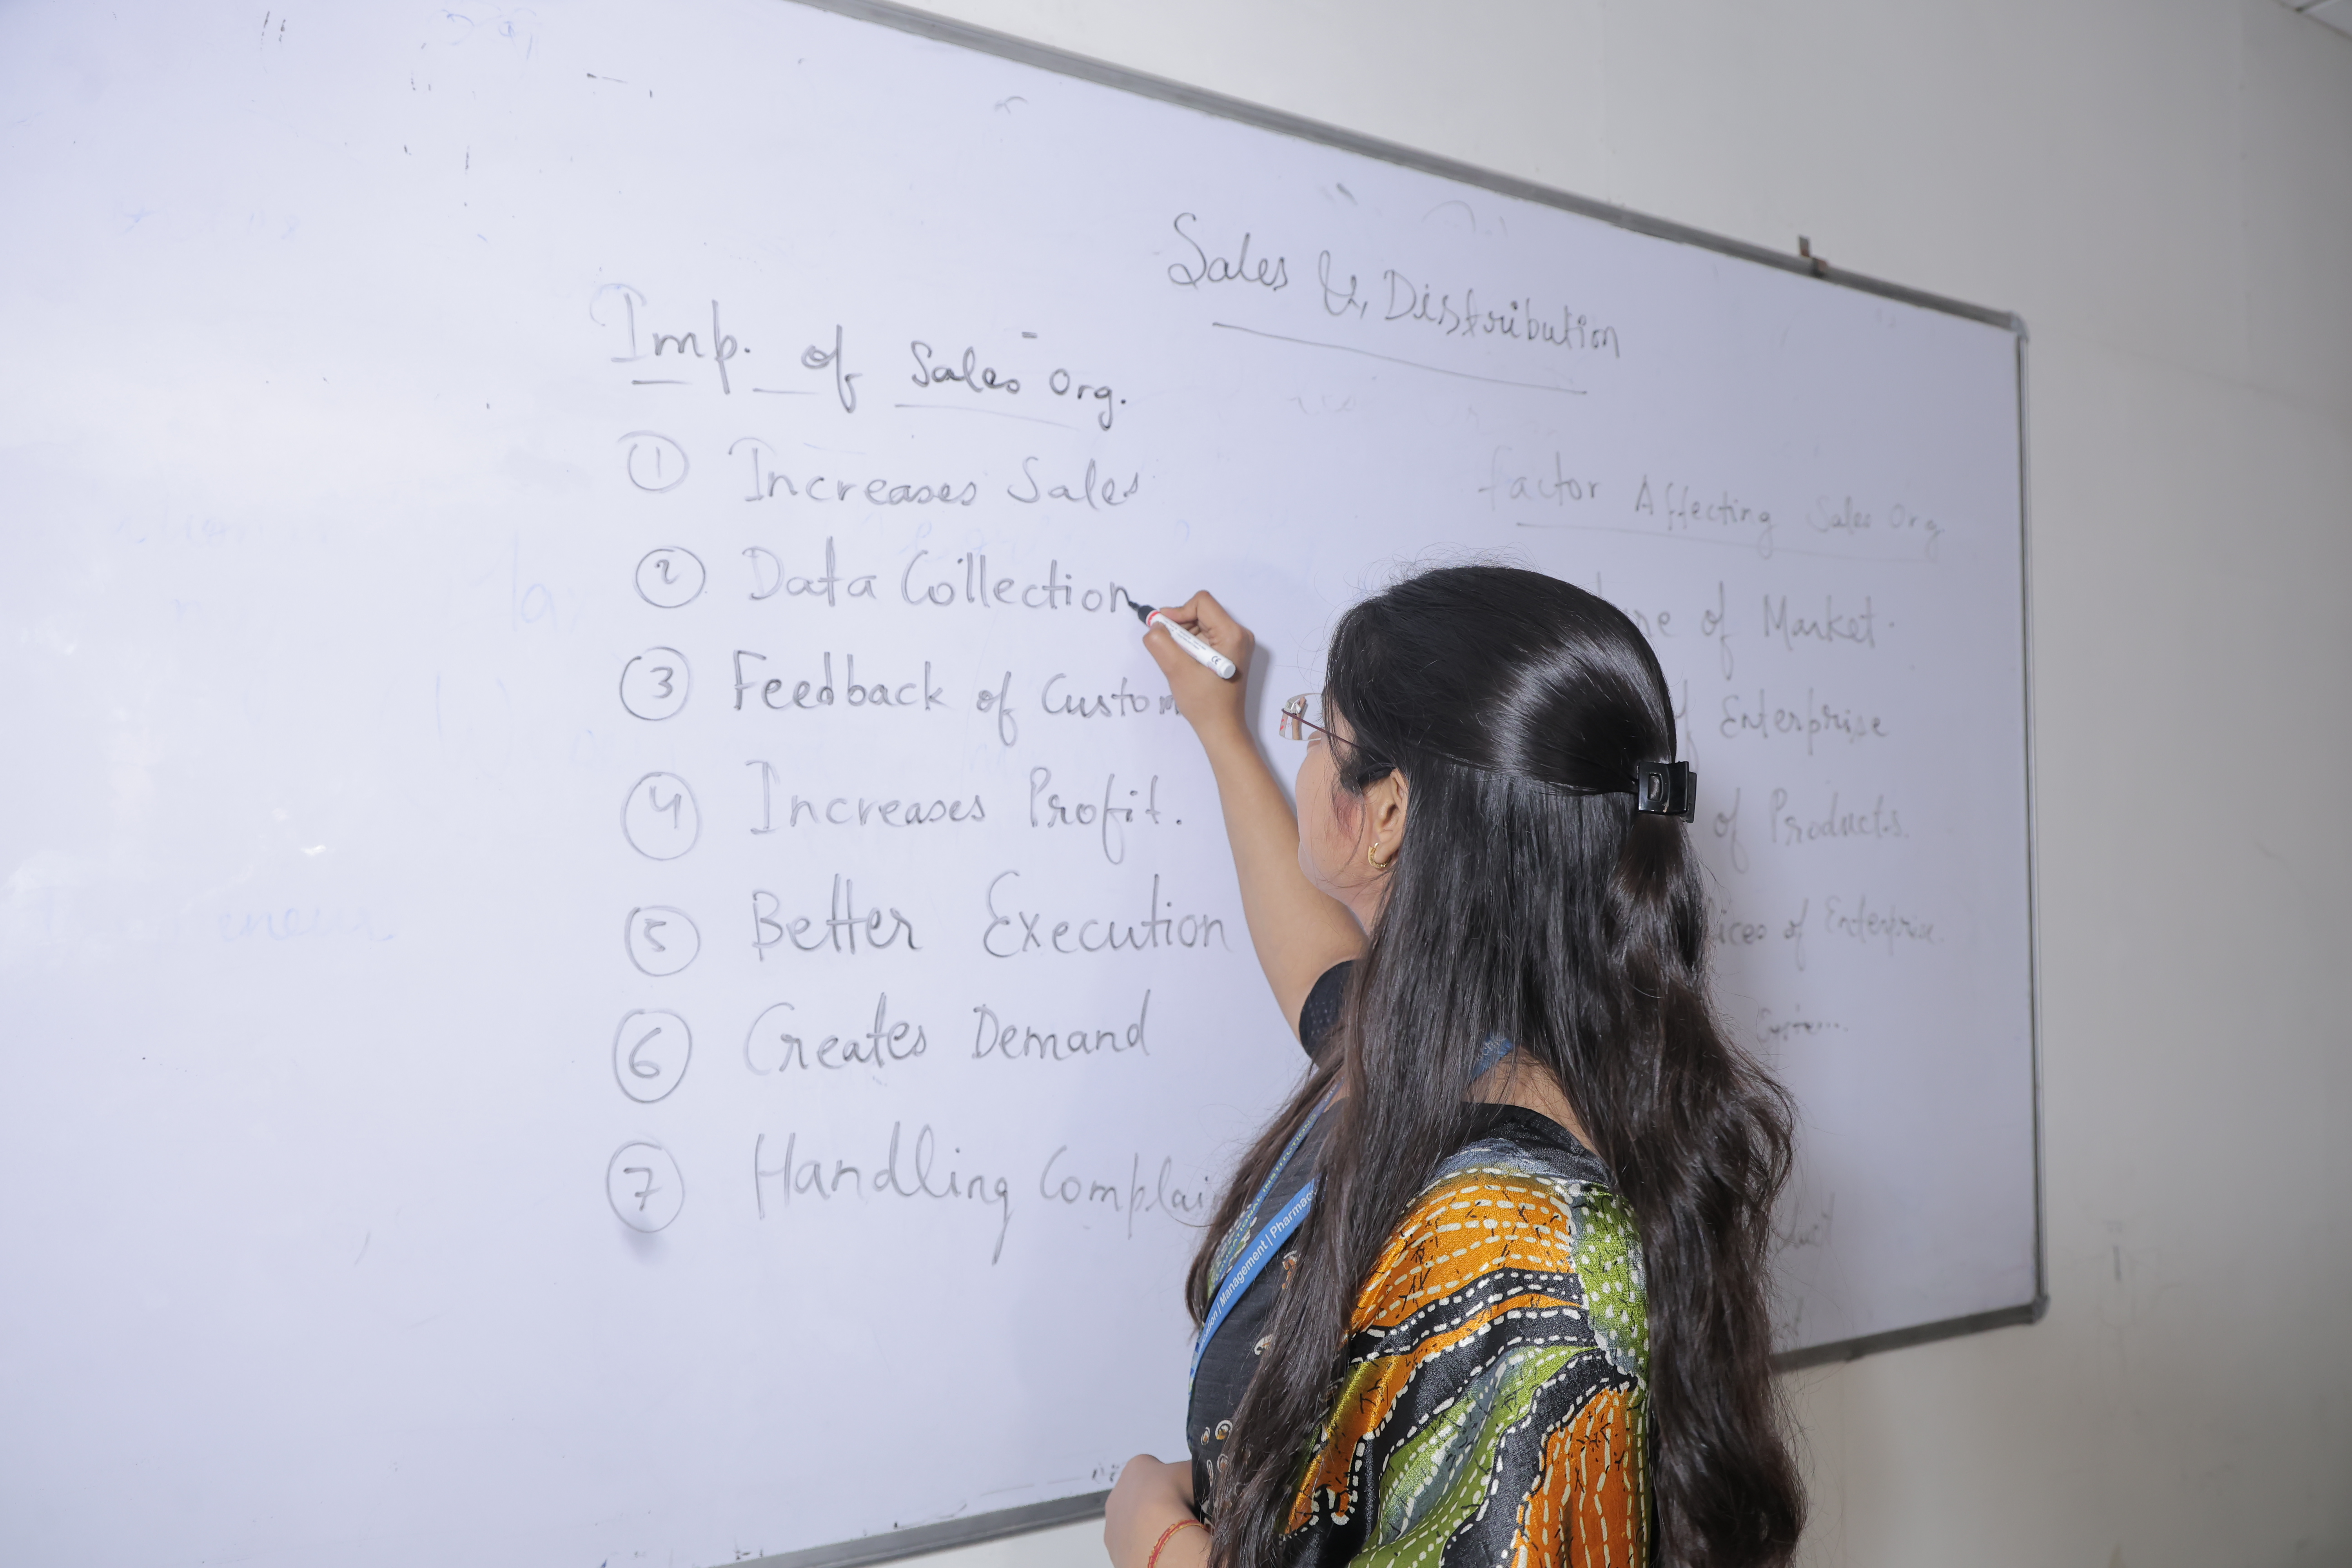 Sales & Distribution
Imp. of Sales Org.
① Increases Sales
② Data Collection
③ Feedback of Custom
④ Increases Profit.
⑤ Better Execution
⑥ Creates Demand
⑦ Handling Complai
Factor Affecting Sales Org
of Market.
Enterprise
of Products.
of Enterprise.
| Management | Pharmac